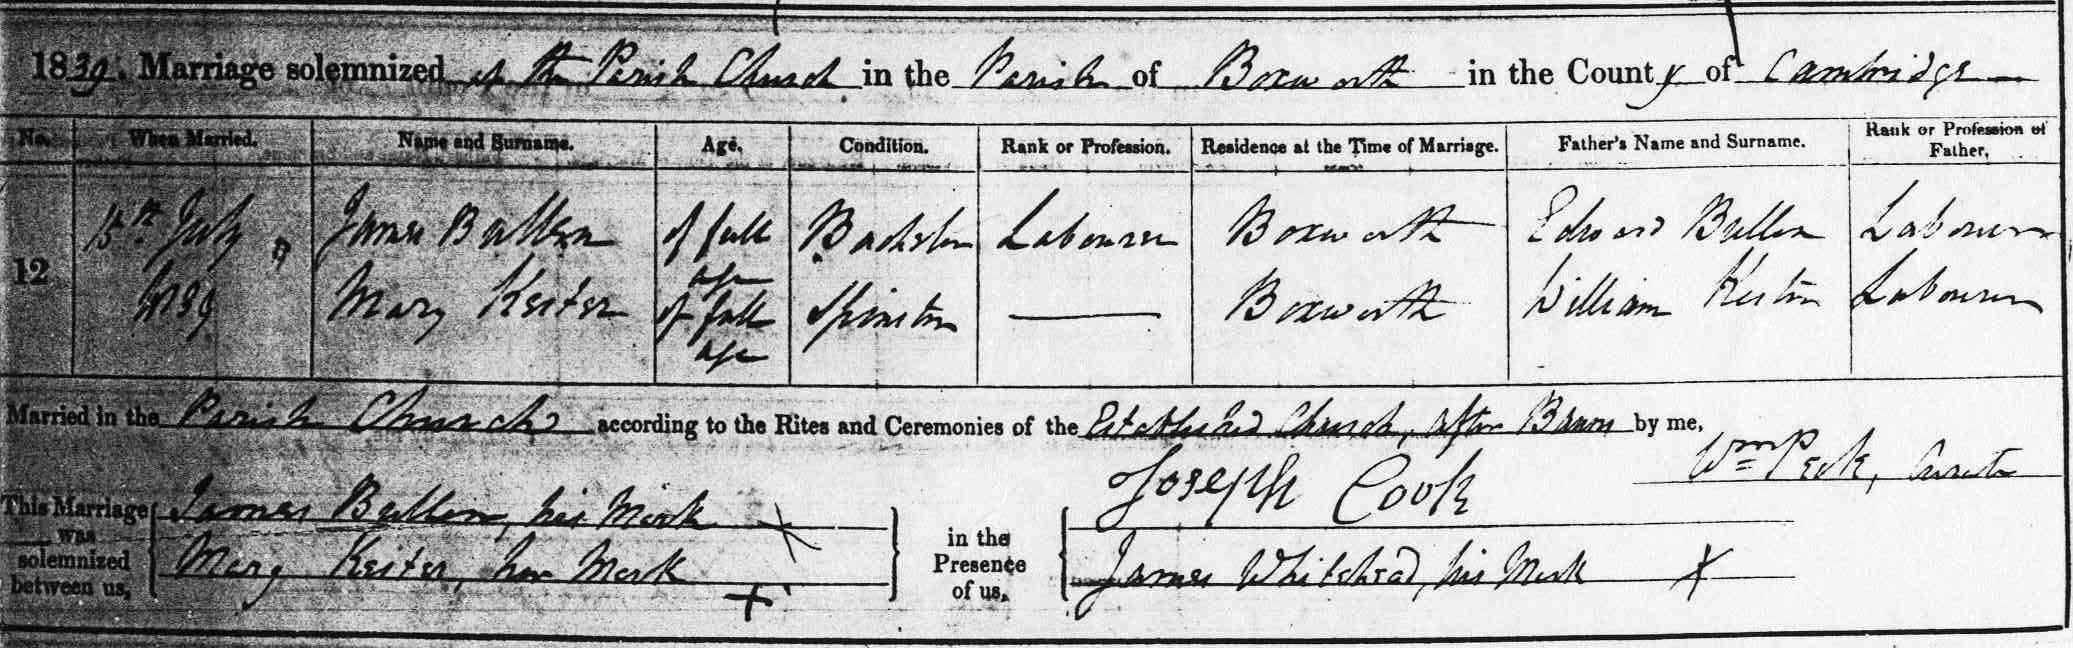 1839. Marriage solemnized at the Parish Church in the Parish of Boxworth in the County of Cambridge
No. When Married. Name and Surname. Age. Condition. Rank or Profession. Residence at the Time of Marriage. Father's Name and Surname. Rank or Profession of Father.
12 15th July James Bullen of full age Bachelor Labourer Boxworth Edward Bullen Labourer
1839 Mary Kester of full age Spinster Boxworth William Labourer
Married in the Parish Church according to the Rites and Ceremonies of the Established Church, after Banns by me,
Wm Peck, Curate
This Marriage was solemnized between us, James Bullen, his Mark X
Mary Kester, her Mark X
in the Presence of us, Joseph Cook
James Whitehead, his Mark X